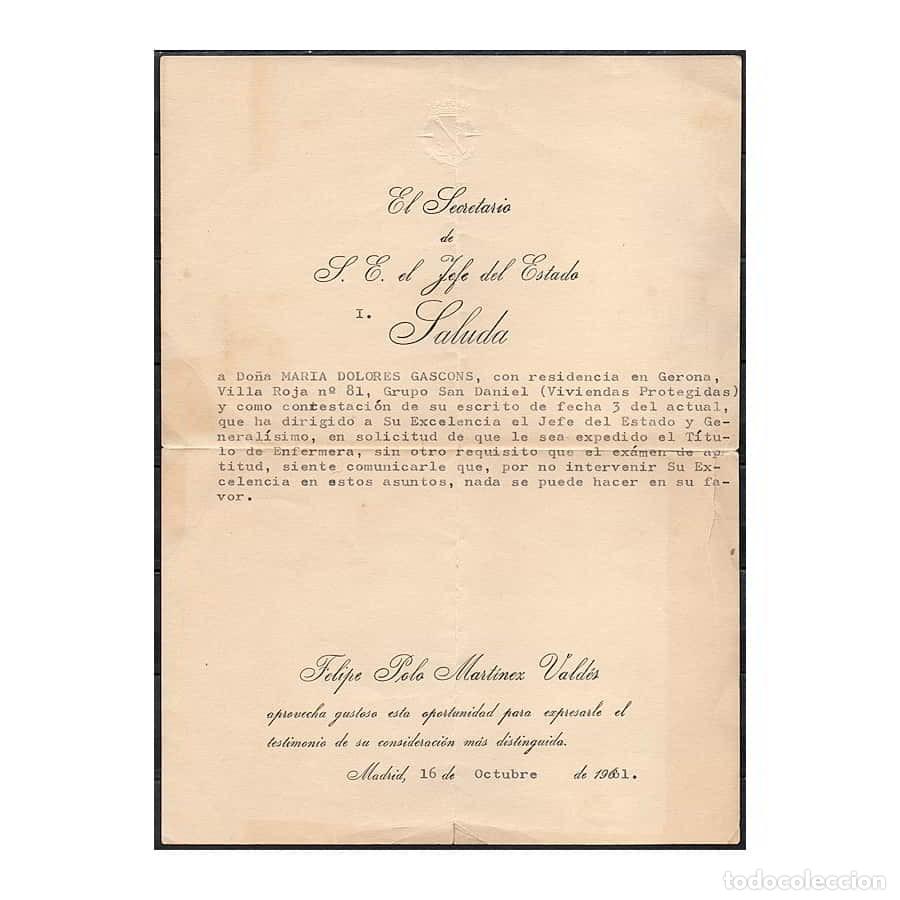 El Secretario
de
S. E. el Jefe del Estado
I.
Saluda
a Doña MARIA DOLORES GASCONS, con residencia en Gerona,
Villa Roja nº 81, Grupo San Daniel (Viviendas Protegidas)
y como contestación de su escrito de fecha 3 del actual,
que ha dirigido a Su Excelencia el Jefe del Estado y Ge-
neralísimo, en solicitud de que le sea expedido el Títu-
lo de Enfermera, sin otro requisito que el exámen de ap-
titud, siente comunicarle que, por no intervenir Su Ex-
celencia en estos asuntos, nada se puede hacer en su fa-
vor.
Felipe Polo Martínez Valdés
aprovecha gustoso esta oportunidad para expresarle el
testimonio de su consideración más distinguida.
Madrid, 16 de Octubre de 1961.
todocoleccion